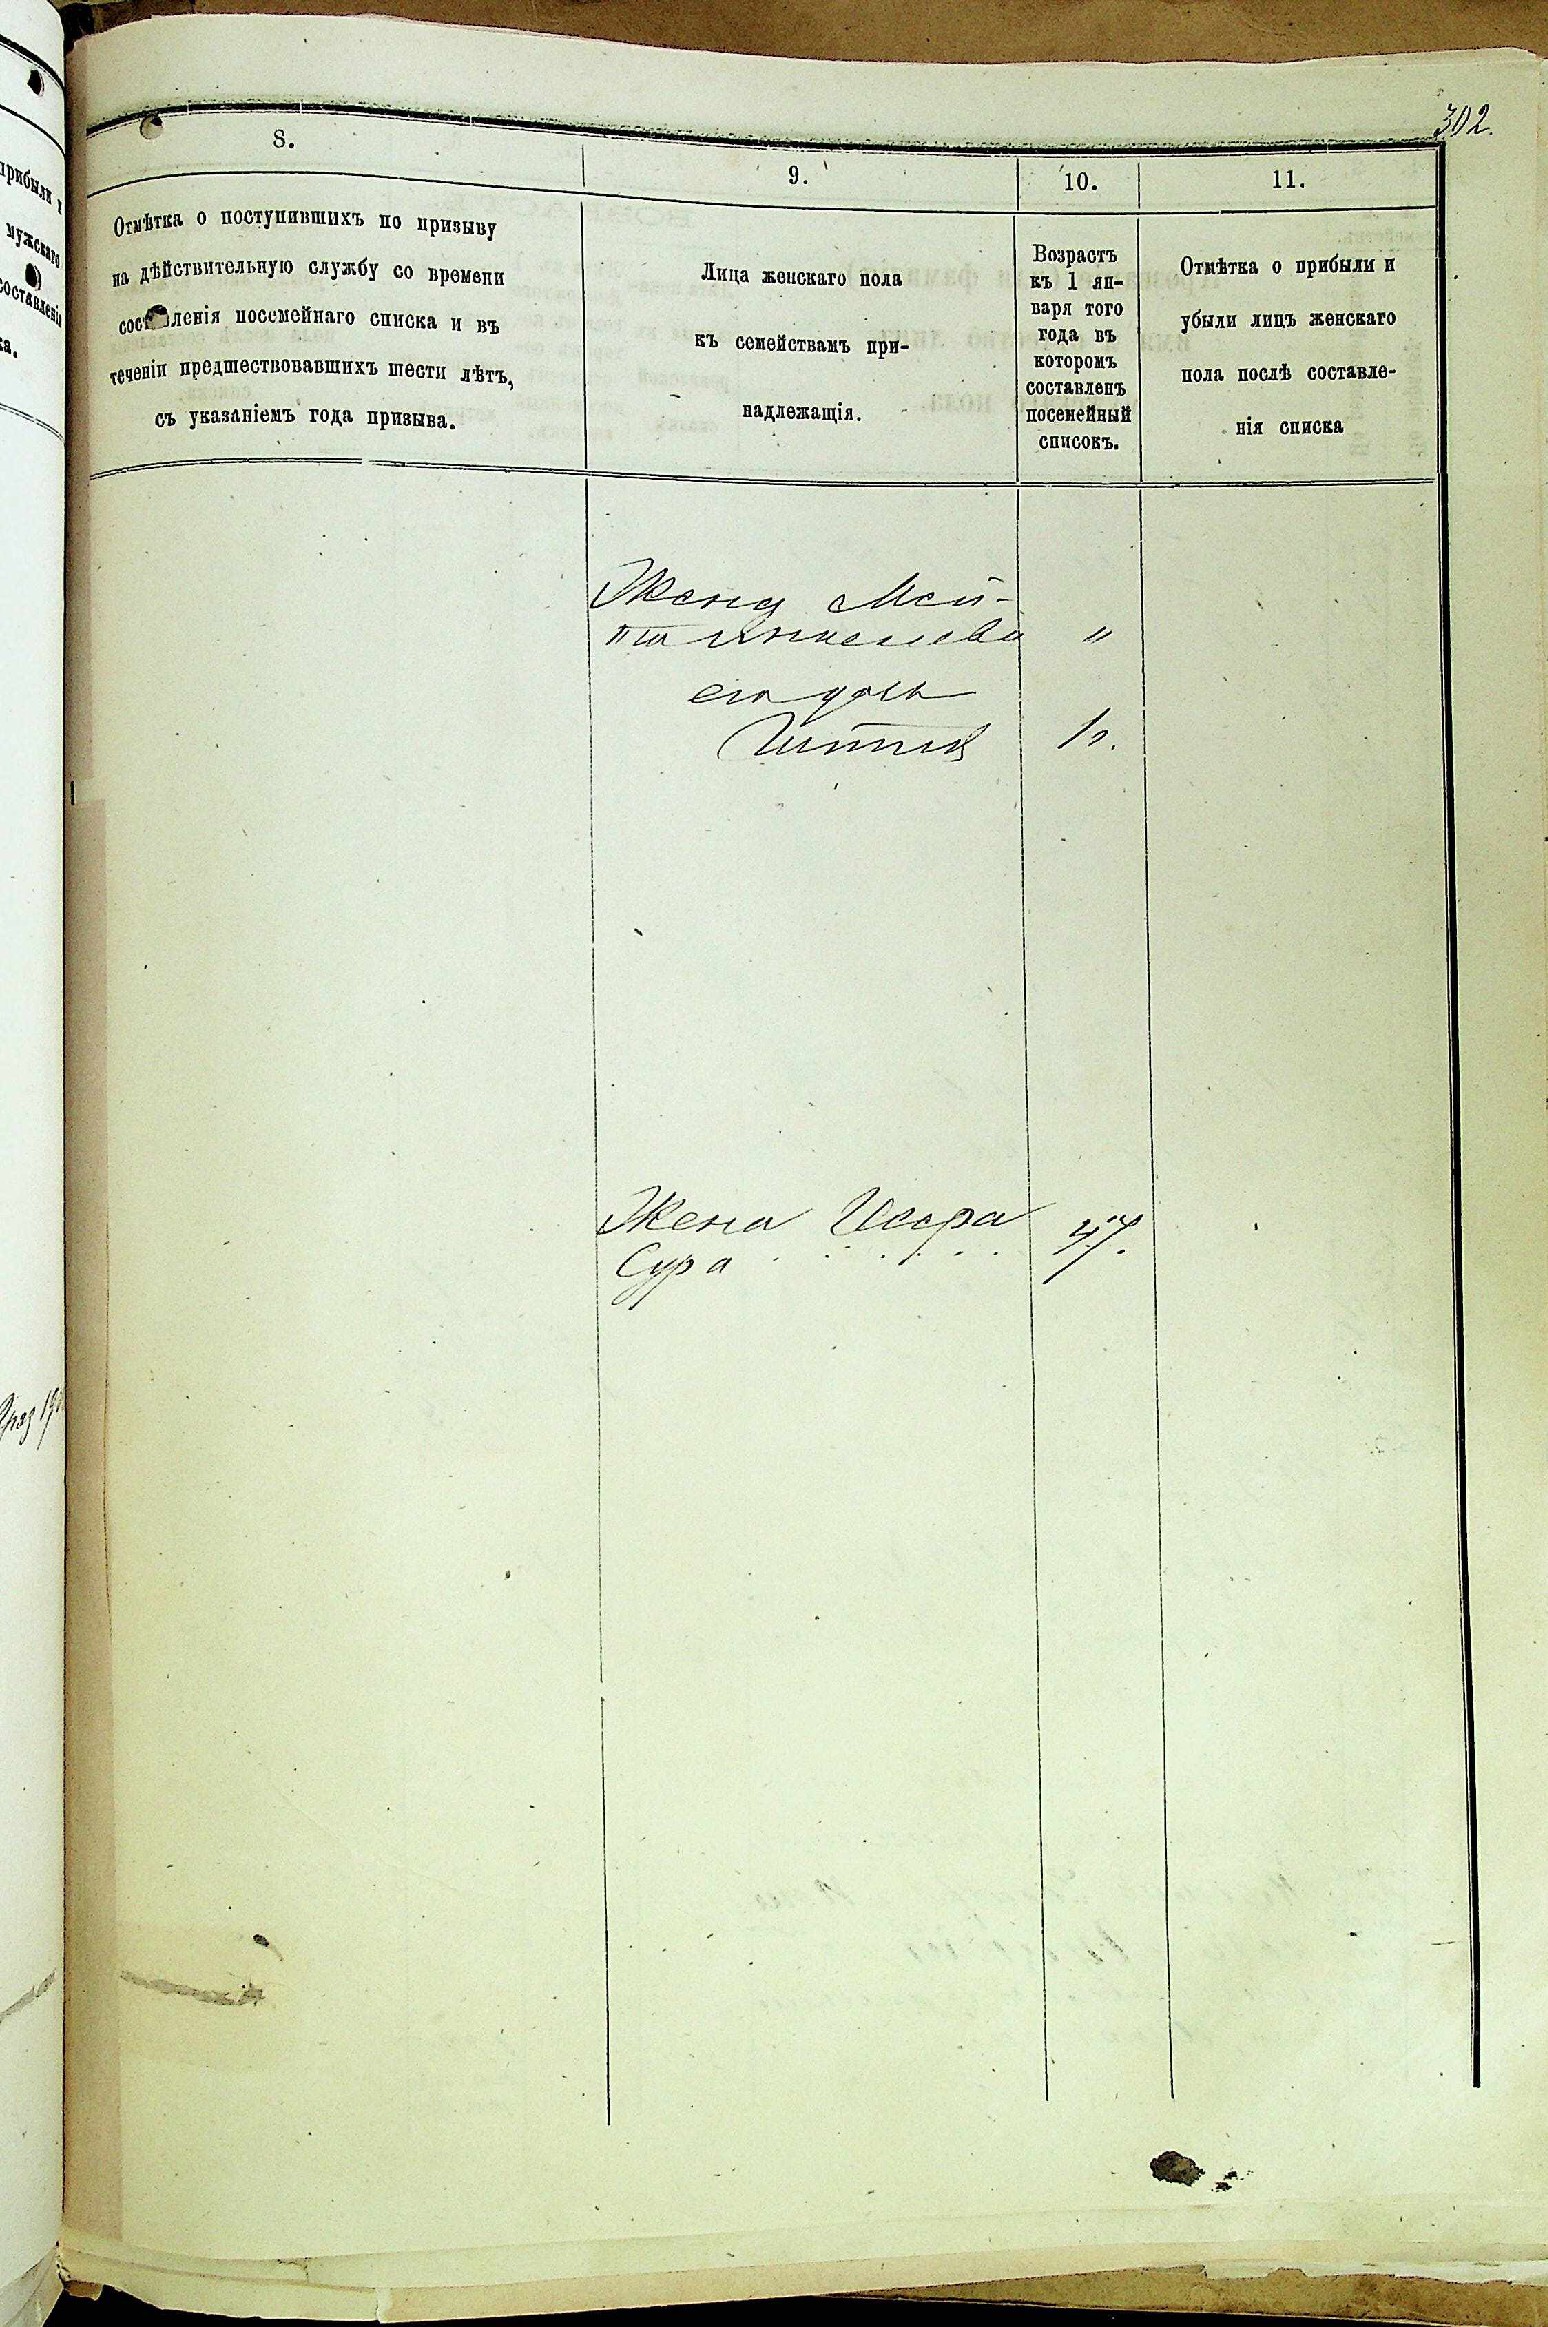 302.
8.
9.
10.
11.
Отмѣтка о поступившихъ по призыву
на дѣйствительную службу со времени
составленія посемейнаго списка и въ
теченіи предшествовавшихъ шести лѣтъ,
съ указаніемъ года призыва.
Лица женскаго пола
къ семействамъ при-
надлежащія.
Возрастъ
къ 1 ян-
варя того
года въ
которомъ
составленъ
посемейный
списокъ.
Отмѣтка о прибыли и
убыли лицъ женскаго
пола послѣ составле-
нія списка
Жена Мей-
"
его дочь
Жена Исера
Сура . . . . . . 47.